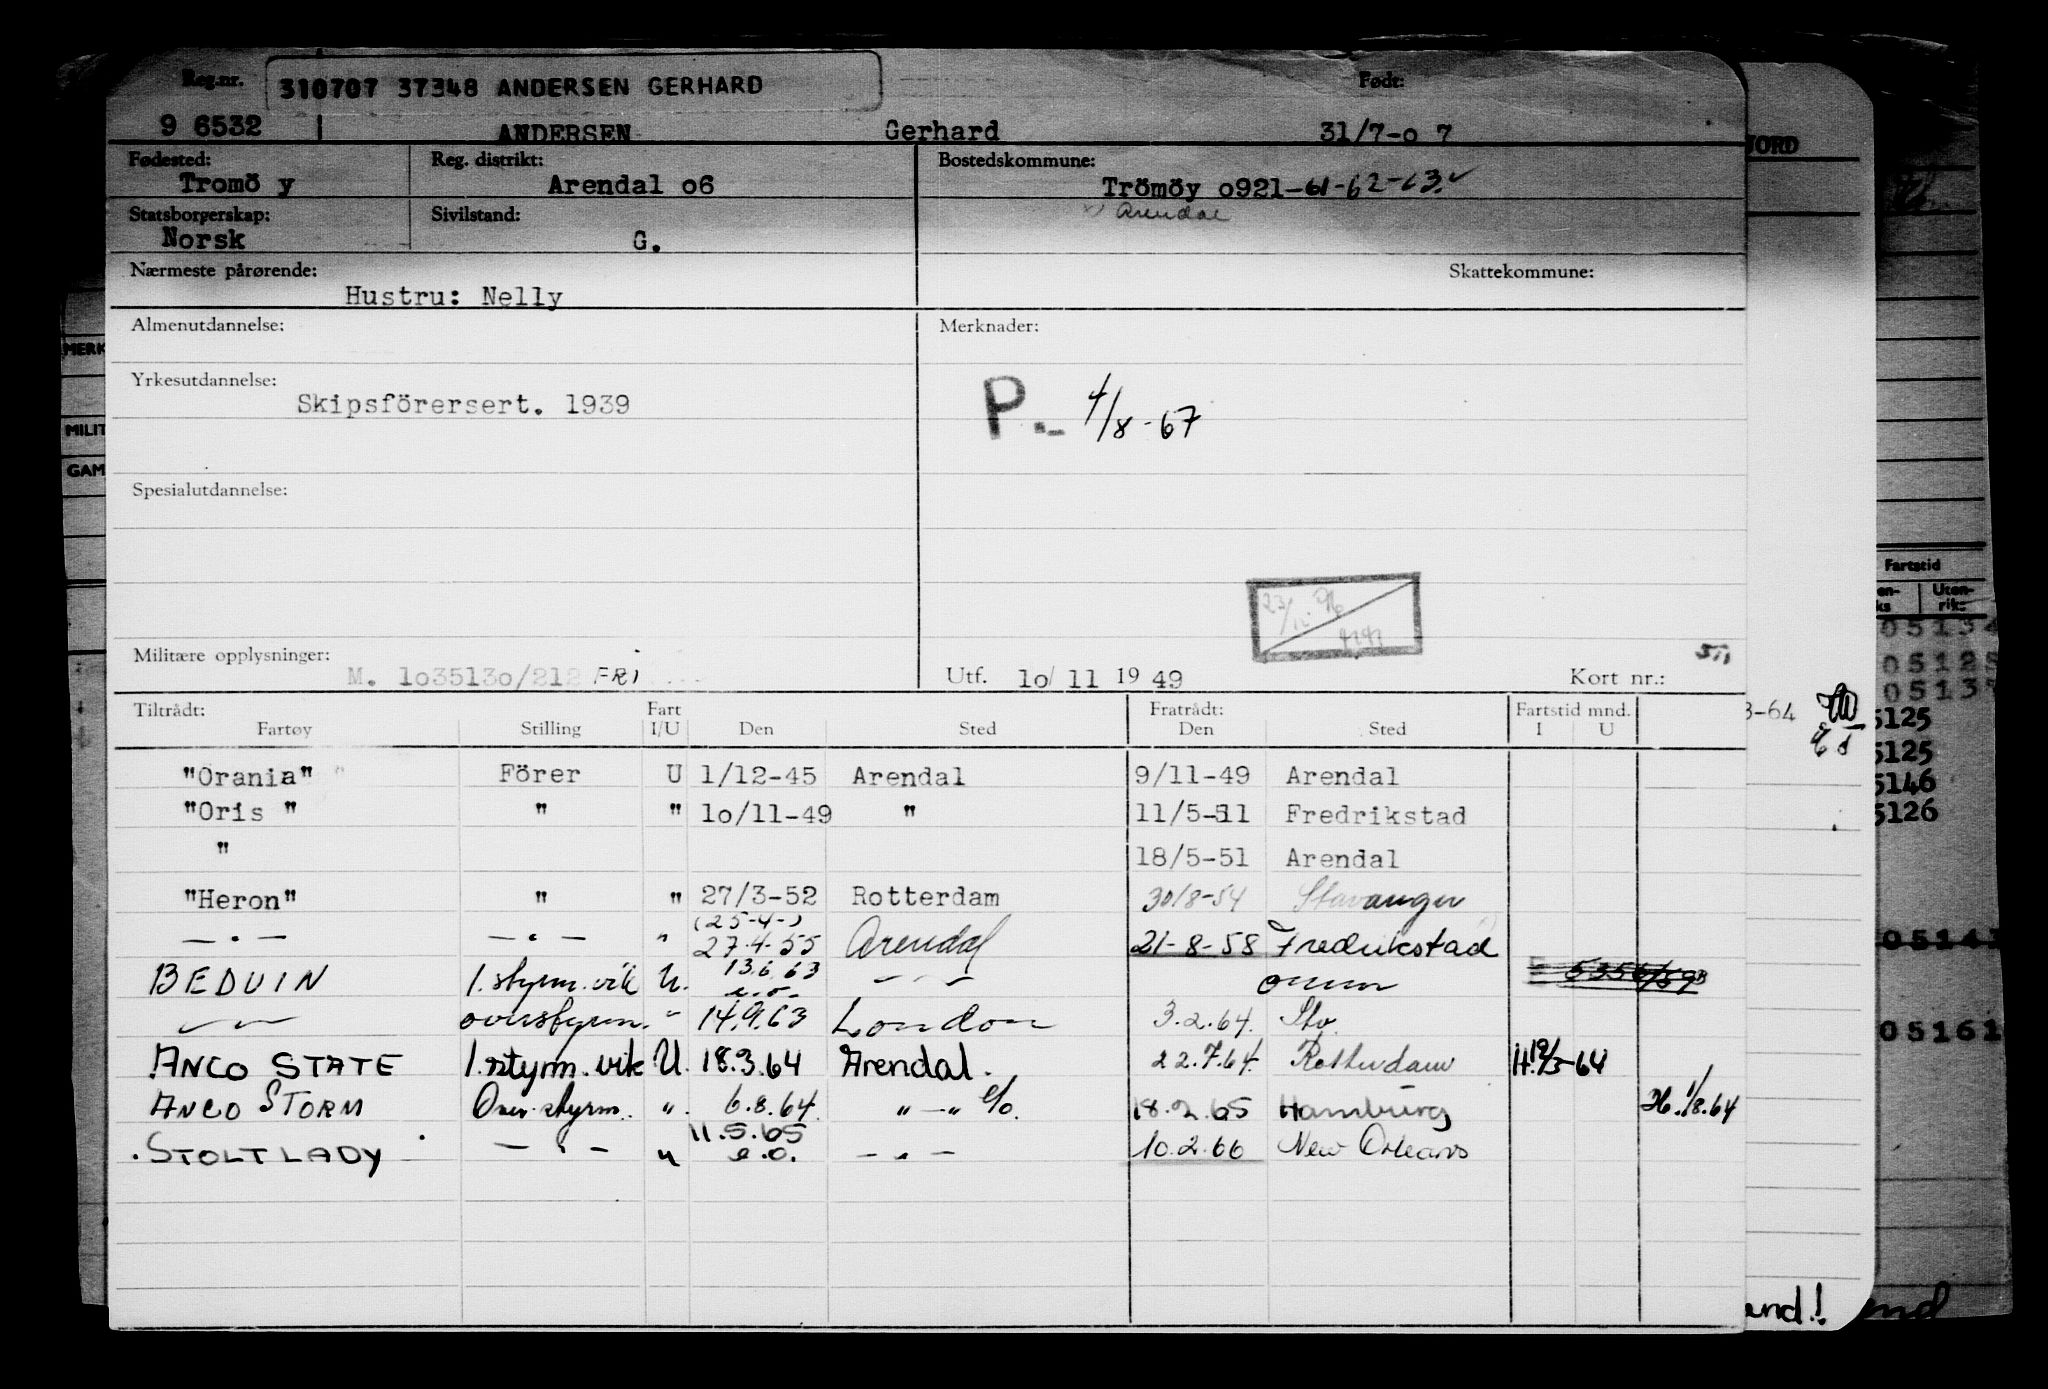 Reg.nr. 310707 37348 ANDERSEN GERHARD Født:
9 6532 ANDERSEN Gerhard 31/7-o 7
Fødested: Reg. distrikt: Bostedskommune:
Tromö y Arendal o6 Trömöy o921-61-62-63.
Arendal
Statsborgerskap: Sivilstand:
Norsk G.
Nærmeste pårørende: Skattekommune:
Hustru: Nelly
Almenutdannelse: Merknader:
Yrkesutdannelse:
Skipsförersert. 1939 P.- 4/8-67
Spesialutdannelse:
Militære opplysninger:
M. 1o3513o/212 FRI Utf. 1o/ 11 19 49 Kort nr.:
Tiltrådt: Fart Fratrådt: Fartstid mnd.
Fartøy Stilling I/U Den Sted Den Sted I U
"Orania" Förer U 1/12-45 Arendal 9/11-49 Arendal
"Oris " " " 1o/11-49 " 11/5-51 Fredrikstad
" 18/5-51 Arendal
"Heron" " " 27/3-52 Rotterdam 30/8-54 Stavanger
(25-4-)
— . — — . — " 27.4.55 Arendal 21-8-58 Fredrikstad
BEDUIN 1.styrm.vik U. 13.6.63 e.o. — . — omm
— " — overstyrm. " 14.9.63 London 3.2.64. Sto.
ANCO STATE 1.styrm.vik U. 18.3.64 Arendal. 22.7.64. Rotterdam H.19/3-64
ANCO STORM Over.styrm. ". 6.8.64. " — " e/o. 18.2.65 Hamburg H.1/8.64
STOLT LADY — . — " 11.5.65 e.o. — . — 10.2.66 New Orleans
JORD
MERK
MILIT
GAM
Fartstid
Uten-
rik:
05134
05125
3-64
5125
5125
5146
5126
05161
and!